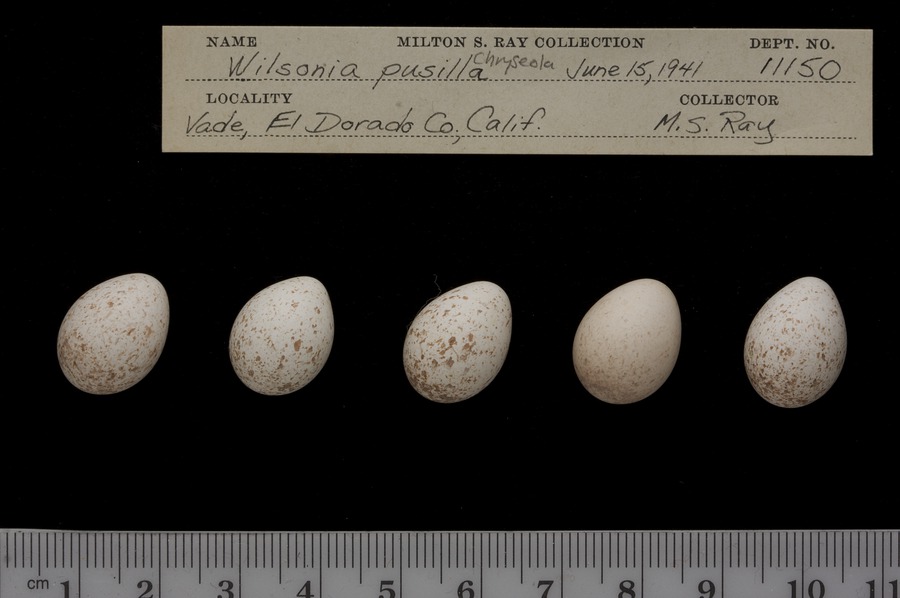 NAME MILTON S. RAY COLLECTION DEPT. NO.
Wilsonia pusilla Chryseola June 15, 1941 11150
LOCALITY COLLECTOR
Vade, El Dorado Co., Calif. M.S. Ray
cm 1 2 3 4 5 6 7 8 9 10 11